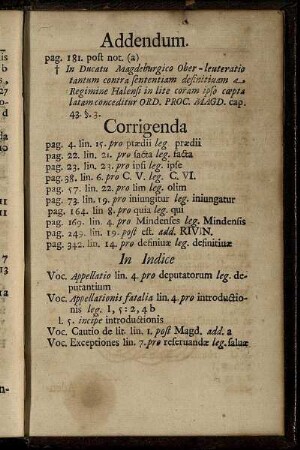 Addendum.
pag. 181. post not. (a)
† In Ducatu Magdeburgico Ober-leuteratio
tantum contra sententiam definitivam a
Regimine Halensi in lite coram ipso cœpta
latam conceditur ORD. PROC. MAGD. cap.
43. §. 3.
Corrigenda
pag. 4. lin. 15. pro ptædii leg prædii
pag. 22. lin. 21. pro facta leg. tacta
pag. 23. lin. 23. pro ipsi leg. ipse
pag. 38. lin. 6. pro C. V. leg. C. VI.
pag. 57. lin. 22. pro lim leg. olim
pag. 73. lin. 19. pro iniungitur leg. iniungatur
pag. 164. lin 8. pro quia leg. qui
pag. 169. lin. 4. pro Mindenses leg. Mindensis
pag. 249. lin. 19. post est. add. RIVIN.
pag. 342. lin. 14. pro definivæ leg. definitivæ
In Indice
Voc. Appellatio lin. 4. pro deputatorum leg. de-
putantium
Voc. Appellationis fatalia lin. 4. pro introductio-
nis leg. 1, 5: 2, 4 b
l. 5. incipe introductionis
Voc. Cautio de lit. lin. 1. post Magd. add. 2
Voc. Exceptiones lin. 7. pro reseruandæ leg. saluæ